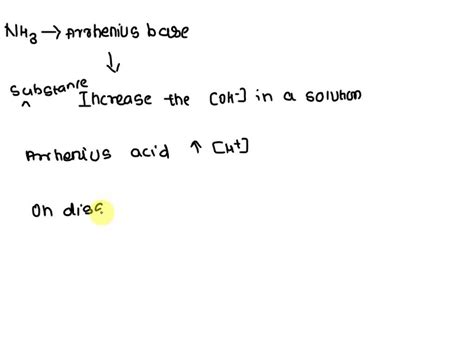 NH3 → Arrhenius base
↓
substance
^ Increase the [OH-] in a solution
Arrhenius acid ↑ [H+]
On diss